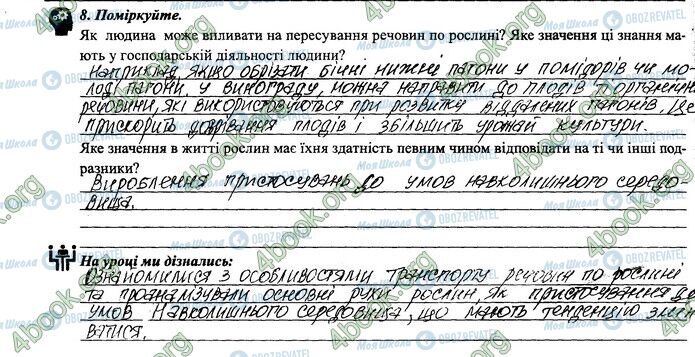 8. Поміркуйте.
Як людина може впливати на пересування речовин по рослині? Яке значення ці знання ма-
ють у господарській діяльності людини?
Наприклад якщо обрізати бічні нижні пагони у помідорів чи мо-
лоді пагони у винограду, можна направити до плодів ті органічні
речовини, які використовуються при розвитку віддалених пагонів. Це
прискорить дозрівання плодів і збільшить урожай культури.
Яке значення в житті рослин має їхня здатність певним чином відповідати на ті чи інші под-
разники?
Вироблення пристосувань до умов навколишнього середо-
вища.
На уроці ми дізнались:
Ознайомилися з особливостями транспорту речовин по рослині
та проаналізували основні рухи рослин, як пристосування до
умов навколишнього середовища, що мають тенденцію змін
ватися.